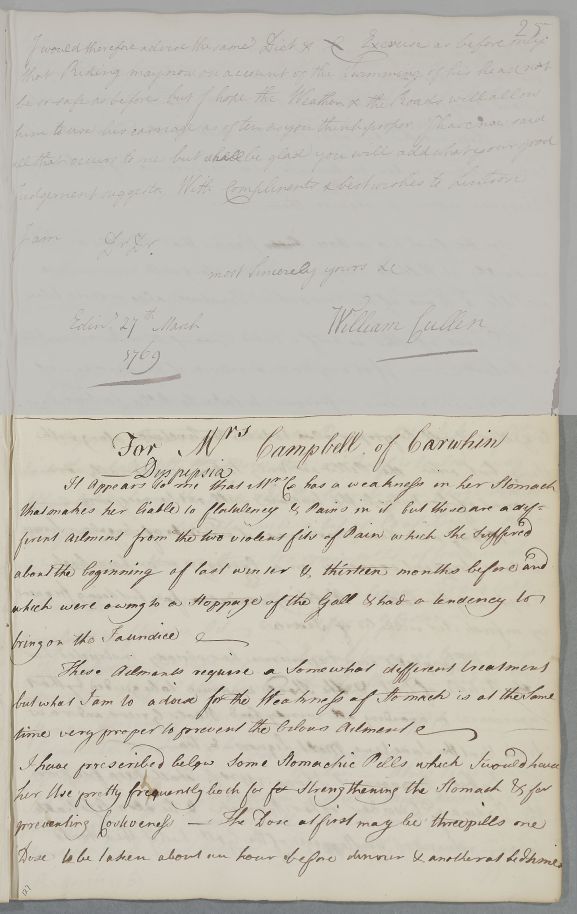 25
I would therefore advise the same Diet & Exercise as before only
that Riding may now on account of the Swimming of his head not
be so safe as before but I hope the Weather & the Roads will allow
him to use his carriage as often as you think proper. I have now said
all that occurs to me but shall be glad you will add what your good
Judgement suggests. With Compliments & best wishes to
I am Dr Sr.
most Sincerely yours &c
William Cullen
Edinr. 27th March
1769
For Mrs Campbell of Carwhin
Dyspepsia
It appears to me that Mrs C. has a weakness in her Stomach
that makes her liable to flatulency & Pains in it but these are a dif-
ferent ailment from the two violent fits of Pain which she suffered
about the beginning of last winter & thirteen months before and
which were owing to a stoppage of the Gall & had a tendency to
bring on the Jaundice
These Ailments require a Somewhat different treatment
but what I am to advise for the Weakness of Stomach is at the same
time very proper to prevent the bilous Ailment
I have prescribed below some Stomachic Pills which I would have
her Use pretty frequently both for strengthening the Stomach & for
preventing Costiveness — The Dose at first may be three pills one
Dose to be taken about an hour before dinner & another at bedtime